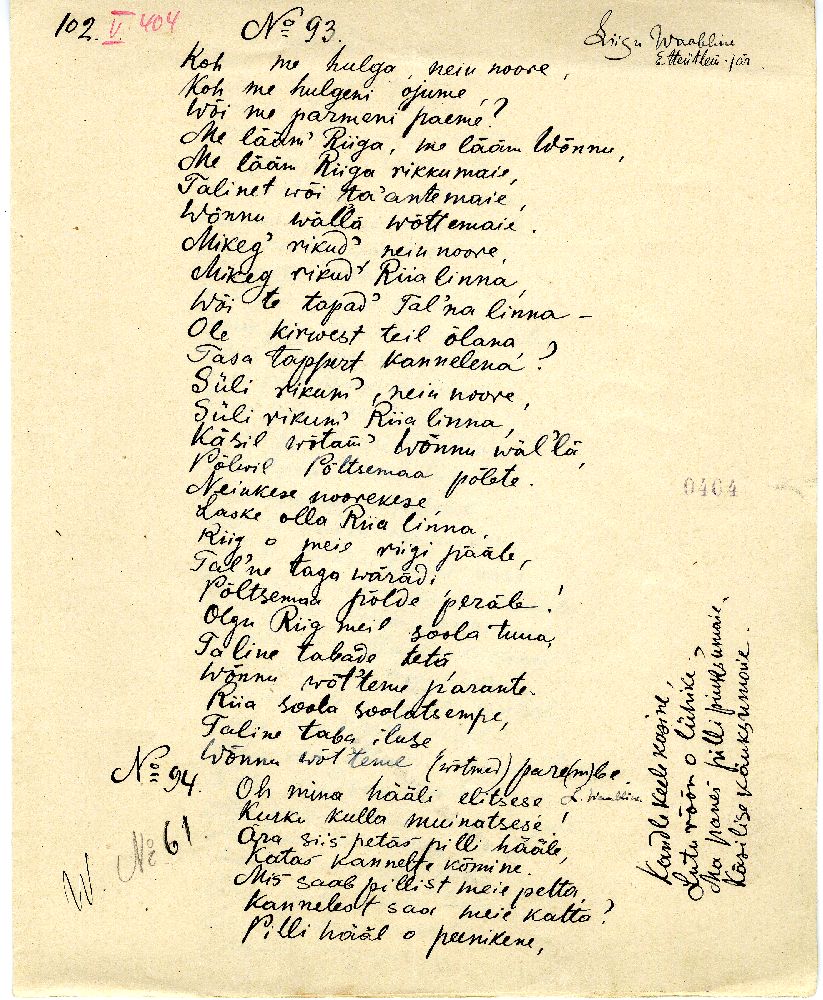 102. V 404
No 93.
Liigu Waabline
Koh me hulga, nein noore,
Koh me hulgeni ojume,
Wõi me parmeni paeme?
Me lääm' Riiga, me lääm Wõnnu,
Me lääm Riiga rikkumaie,
Talinet wõi ta'antemaie,
Wõnnu wällä wõttemaie.
Mikeg' rikud' nein noore,
Mikeg rikud' Riia linna,
Wõi te tapad' Tal'na linna –
Ole kirwest teil õlana,
Tasa tappert kannelena?
Süli rikum', nein noore,
Süli rikum' Riia linna,
Käsil wõtam' Wõnnu wäl'lä,
Põlwil Põltsemaa põlete.
Neiukese noorekese
Laske olla Riia linna,
Riig o meie riigi pääle,
Tal'ne taga wärädi
Põltsemaa põlde peräle!
Olgu Riig meil soola tuua,
Taline tabade tetä
Wõnnu wõt'teme parante.
Riia soola soolatsempe,
Taline taba iluse
Wõnnu wõt'teme (wõtmed) pare(m)be.
No 94.
L. Waabline
Oh mina hääli elitsese
Kurku kulla muinatsese!
Ära siis petäs pilli hääle,
Katas kannelte kõmine.
Mis saab pillist meie petta,
Kannelest saa meie katta?
Pilli hääl o peenikene,
W. No 61.
Kandle keele kasine,
Lutu rõõn o lühike?
Ma panei pilli piuksumaie,
Käsilise kääuksumaie.
0404